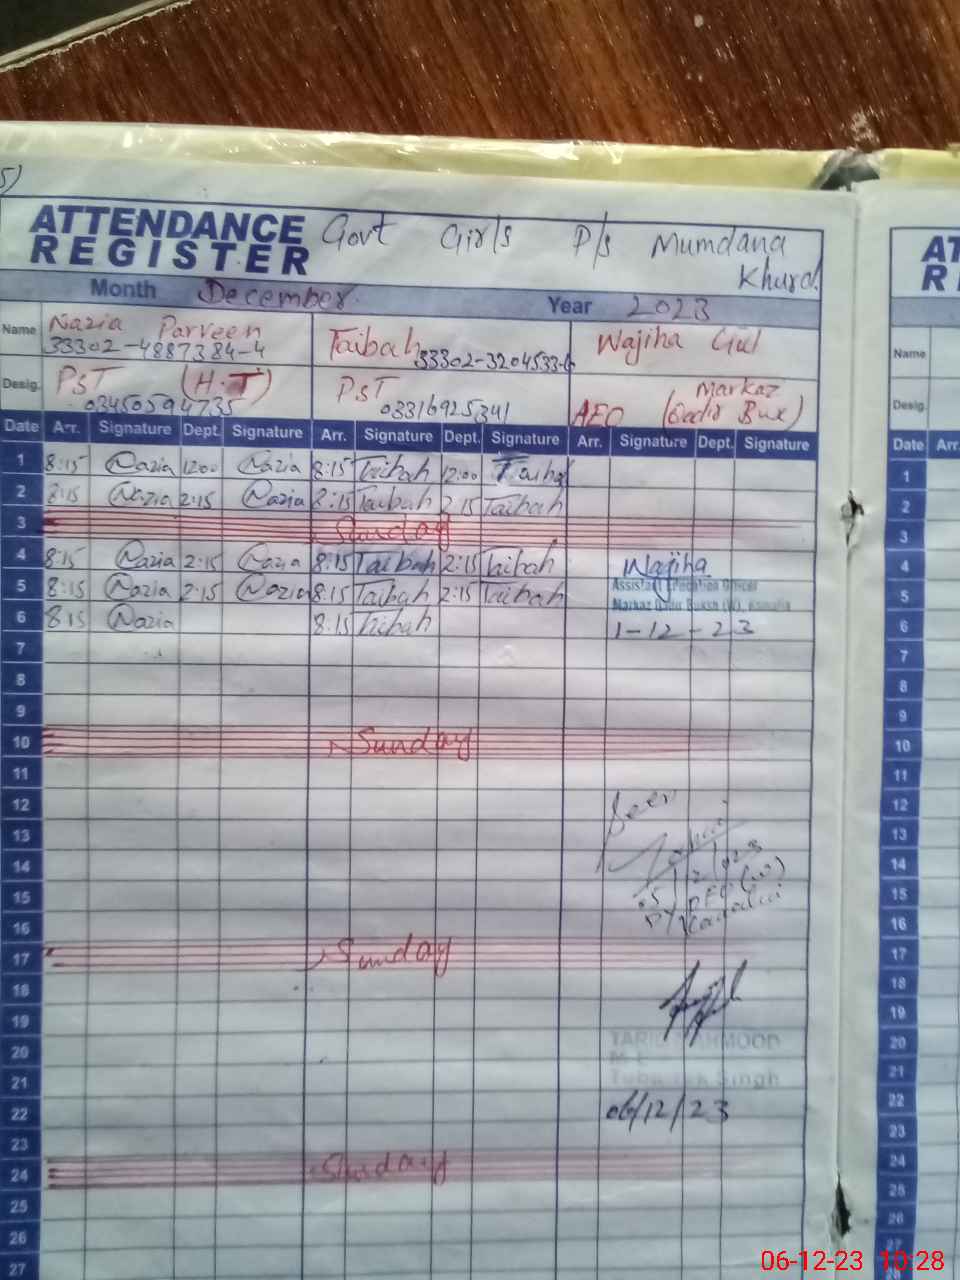 5)
ATTENDANCE REGISTER Govt Girls P/s Mumdana Khurd.
Month December. Year 2023
Name Nazia Parveen 33302-4887384-4 Taibah 33302-3204533-6 Wajiha Gul
Desig. PST (H.T) 03450594735 PST 03316925341 AEO Markaz (Qadir Bux)
Date Arr. Signature Dept. Signature Arr. Signature Dept. Signature Arr. Signature Dept. Signature
1 8:15 Nazia 1200 Nazia 8:15 Taibah 12:00 Taibah
2 8:15 Nazia 2:15 Nazia 8:15 Taibah 2:15 Taibah
3 Sunday
4 8:15 Nazia 2:15 Nazia 8:15 Taibah 2:15 Taibah Wajiha
5 8:15 Nazia 2:15 Nazia 8:15 Taibah 2:15 Taibah Assistant Education Officer
Markaz Qadir Buksh (W), Kamalia
6 8:15 Nazia 8:15 Taibah 1-12-23
7
8
9
10 Sunday
11
12 Seen
13
14
15 05/12/2023
16 DY DEO (W)
17 Sunday
18
19
20 TARIQ MAHMOOD
21 Toba Tek Singh
22 06/12/23
23
24 Sunday
25
26
27
AT
R
Name
Desig.
Date Arr.
1
2
3
4
5
6
7
8
9
10
11
12
13
14
15
16
17
18
19
20
21
22
23
24
25
26
27
06-12-23 10:28